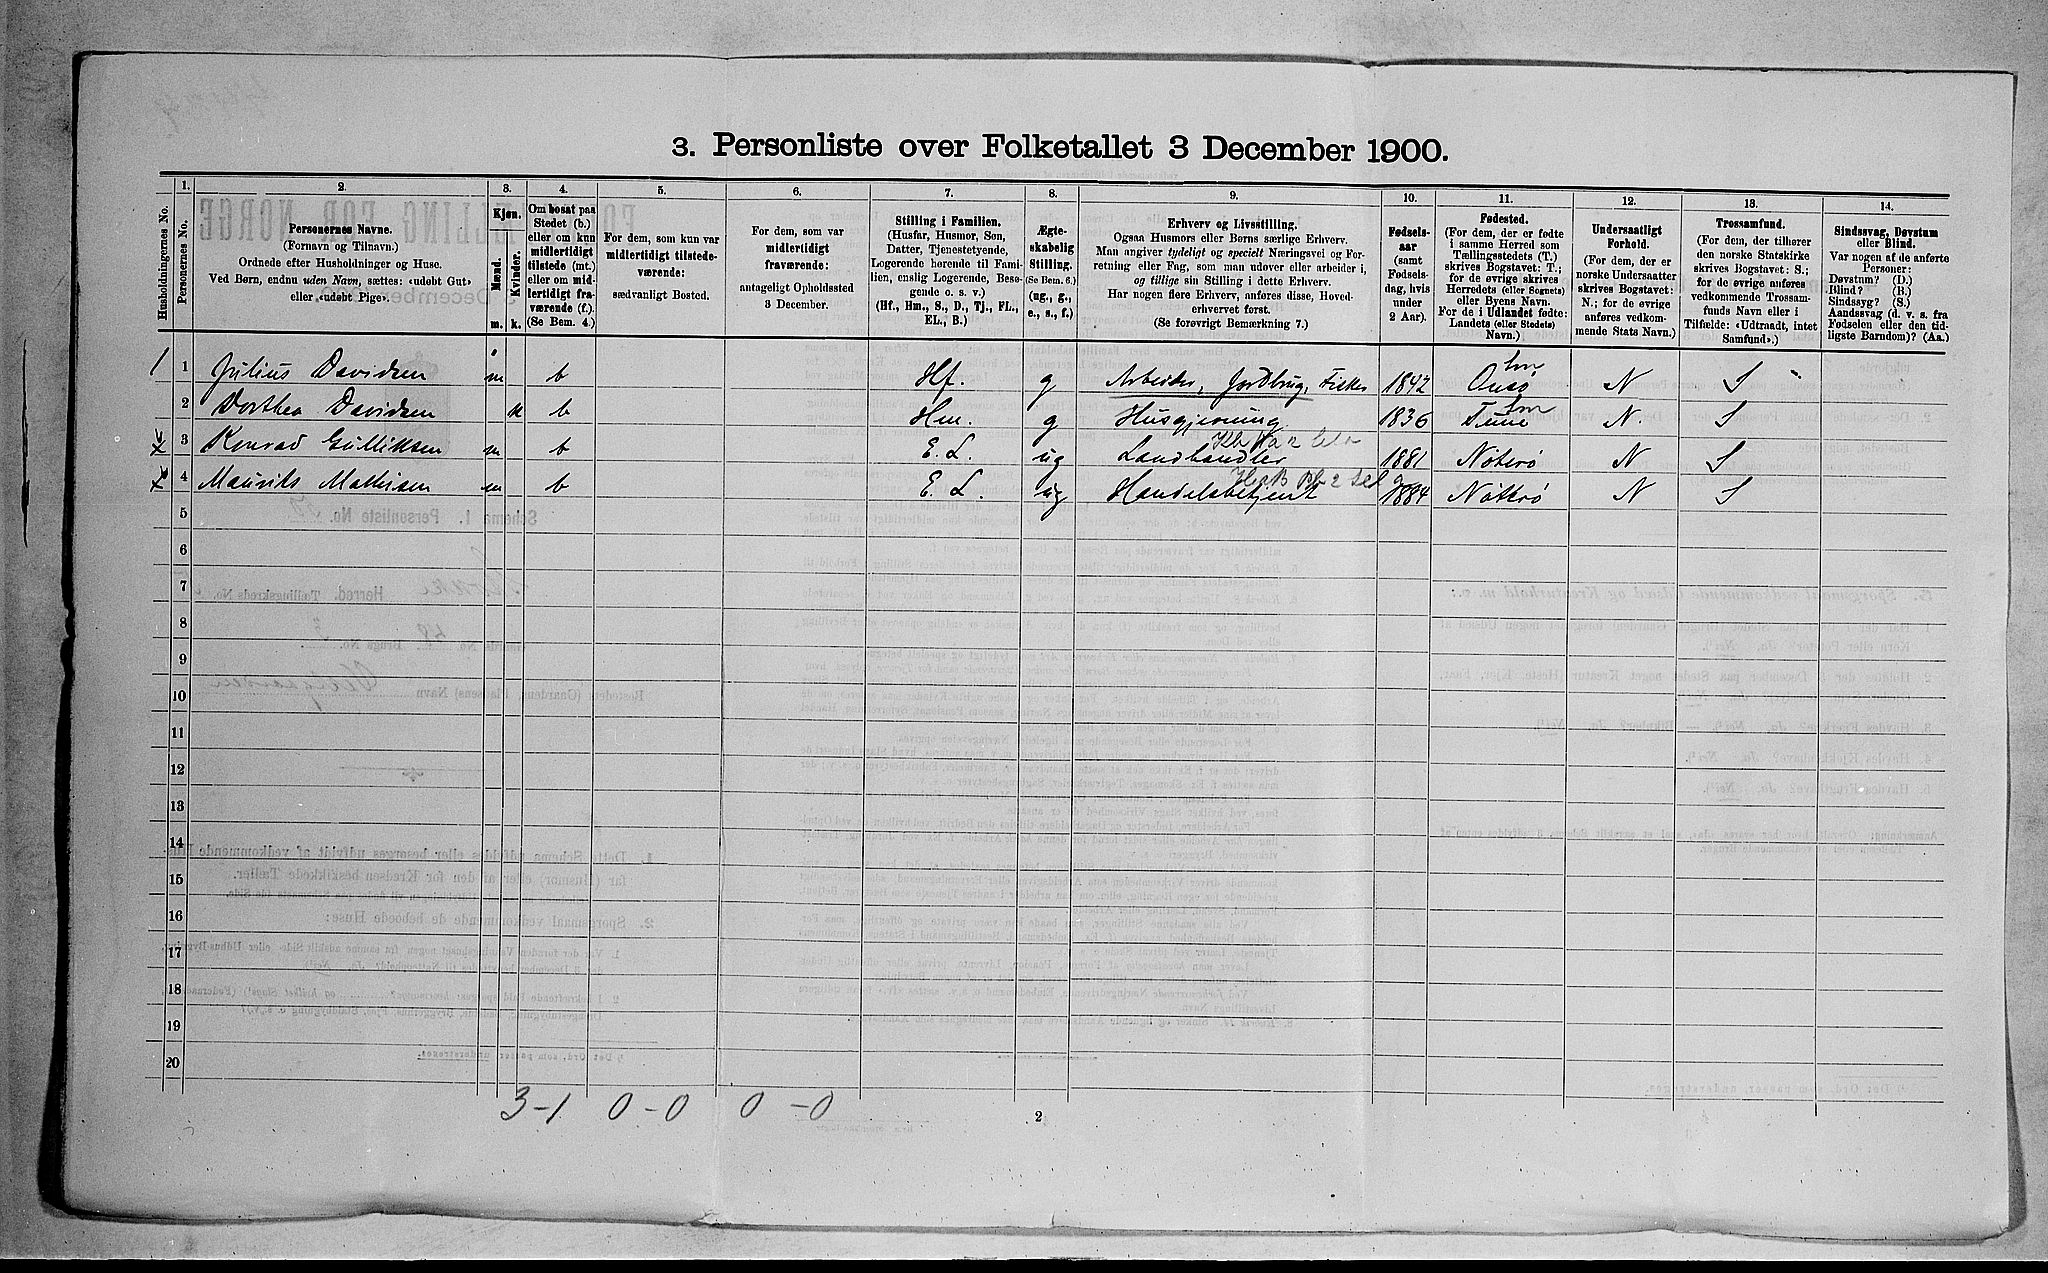 3. Personliste over Folketallet 3 December 1900.
Husholdningernes No.
1.
Personernes No.
2.
Personernes Navne.
(Fornavn og Tilnavn.)
Ordnede efter Husholdninger og Huse.
Ved Børn, endnu uden Navn, sættes: «udøbt Gut»
eller «udøbt Pige».
3.
Kjøn.
Mænd.
Kvinder.
m.
k.
4.
Om bosat paa
Stedet (b.)
eller om kun
midlertidigt
tilstede (mt.)
eller om mid-
lertidigt fra-
værende (f.).
(Se Bem. 4.)
5.
For dem, som kun var
midlertidigt tilstede-
værende:
sædvanligt Bosted.
6.
For dem, som var
midlertidigt
fraværende:
antageligt Opholdssted
3 December.
7.
Stilling i Familien.
(Husfar, Husmor, Søn,
Datter, Tjenestetyende,
Logerende hørende til Fami-
lien, enslig Logerende, Besø-
gende o. s. v.)
(Hf., Hm., S., D., Tj., FL.,
EL., B.)
8.
Ægte-
skabelig
Stilling.
(Se Bem. 6.)
(ug., g.,
e., s., f.)
9.
Erhverv og Livsstilling.
Ogsaa Husmors eller Børns særlige Erhverv.
Man angiver tydeligt og specielt Næringsvei og For-
retning eller Fag, som man udøver eller arbeider i,
og tillige sin Stilling i dette Erhverv.
Har nogen flere Erhverv, anføres disse, Hoved-
erhvervet først.
(Se forøvrigt Bemærkning 7.)
10.
Fødsels-
aar
(samt
Fødsels-
dag, hvis
under
2 Aar).
11.
Fødested.
(For dem, der er fødte
i samme Herred som
Tællingsstedets (T.)
skrives Bogstavet: T.;
for de øvrige skrives
Herredets (eller Sognets)
eller Byens Navn.
For de i Udlandet fødte:
Landets (eller Stedets)
Navn.)
12.
Undersaatligt
Forhold.
(For dem, der er
norske Undersaatter
skrives Bogstavet:
N.; for de øvrige
anføres vedkom-
mende Stats Navn.)
13.
Trossamfund.
(For dem, der tilhører
den norske Statskirke
skrives Bogstavet: S.;
for de øvrige anføres
vedkommende Trossam-
funds Navn eller i
Tilfælde: «Udtraadt, intet
Samfund».)
14.
Sindssvag, Døvstum
eller Blind.
Var nogen af de anførte
Personer:
Døvstum? (D.)
Blind? (B.)
Sindssyg? (S.)
Aandssvag (d. v. s. fra
Fødselen eller den tid-
ligste Barndom)? (Aa.)
1 1 Julius Davidsen m b Hf. g Arbeider, Jordbrug, Fisker 1842 Onsø N S
2 Dorthea Davidsen k b Hm. g Husgjerning 1836 Tune N. S
3 Konrad Gulliksen m b E. L. ug Landhandler 1881 Nøterø N S
4 Maurits Mathisen m b E. L. ug Handelsbetjent 1884 Nøtterø N S
5
6
7
8
9
10
11
12
13
14
15
16
17
18
19
20
3-1 0-0 0-0
2